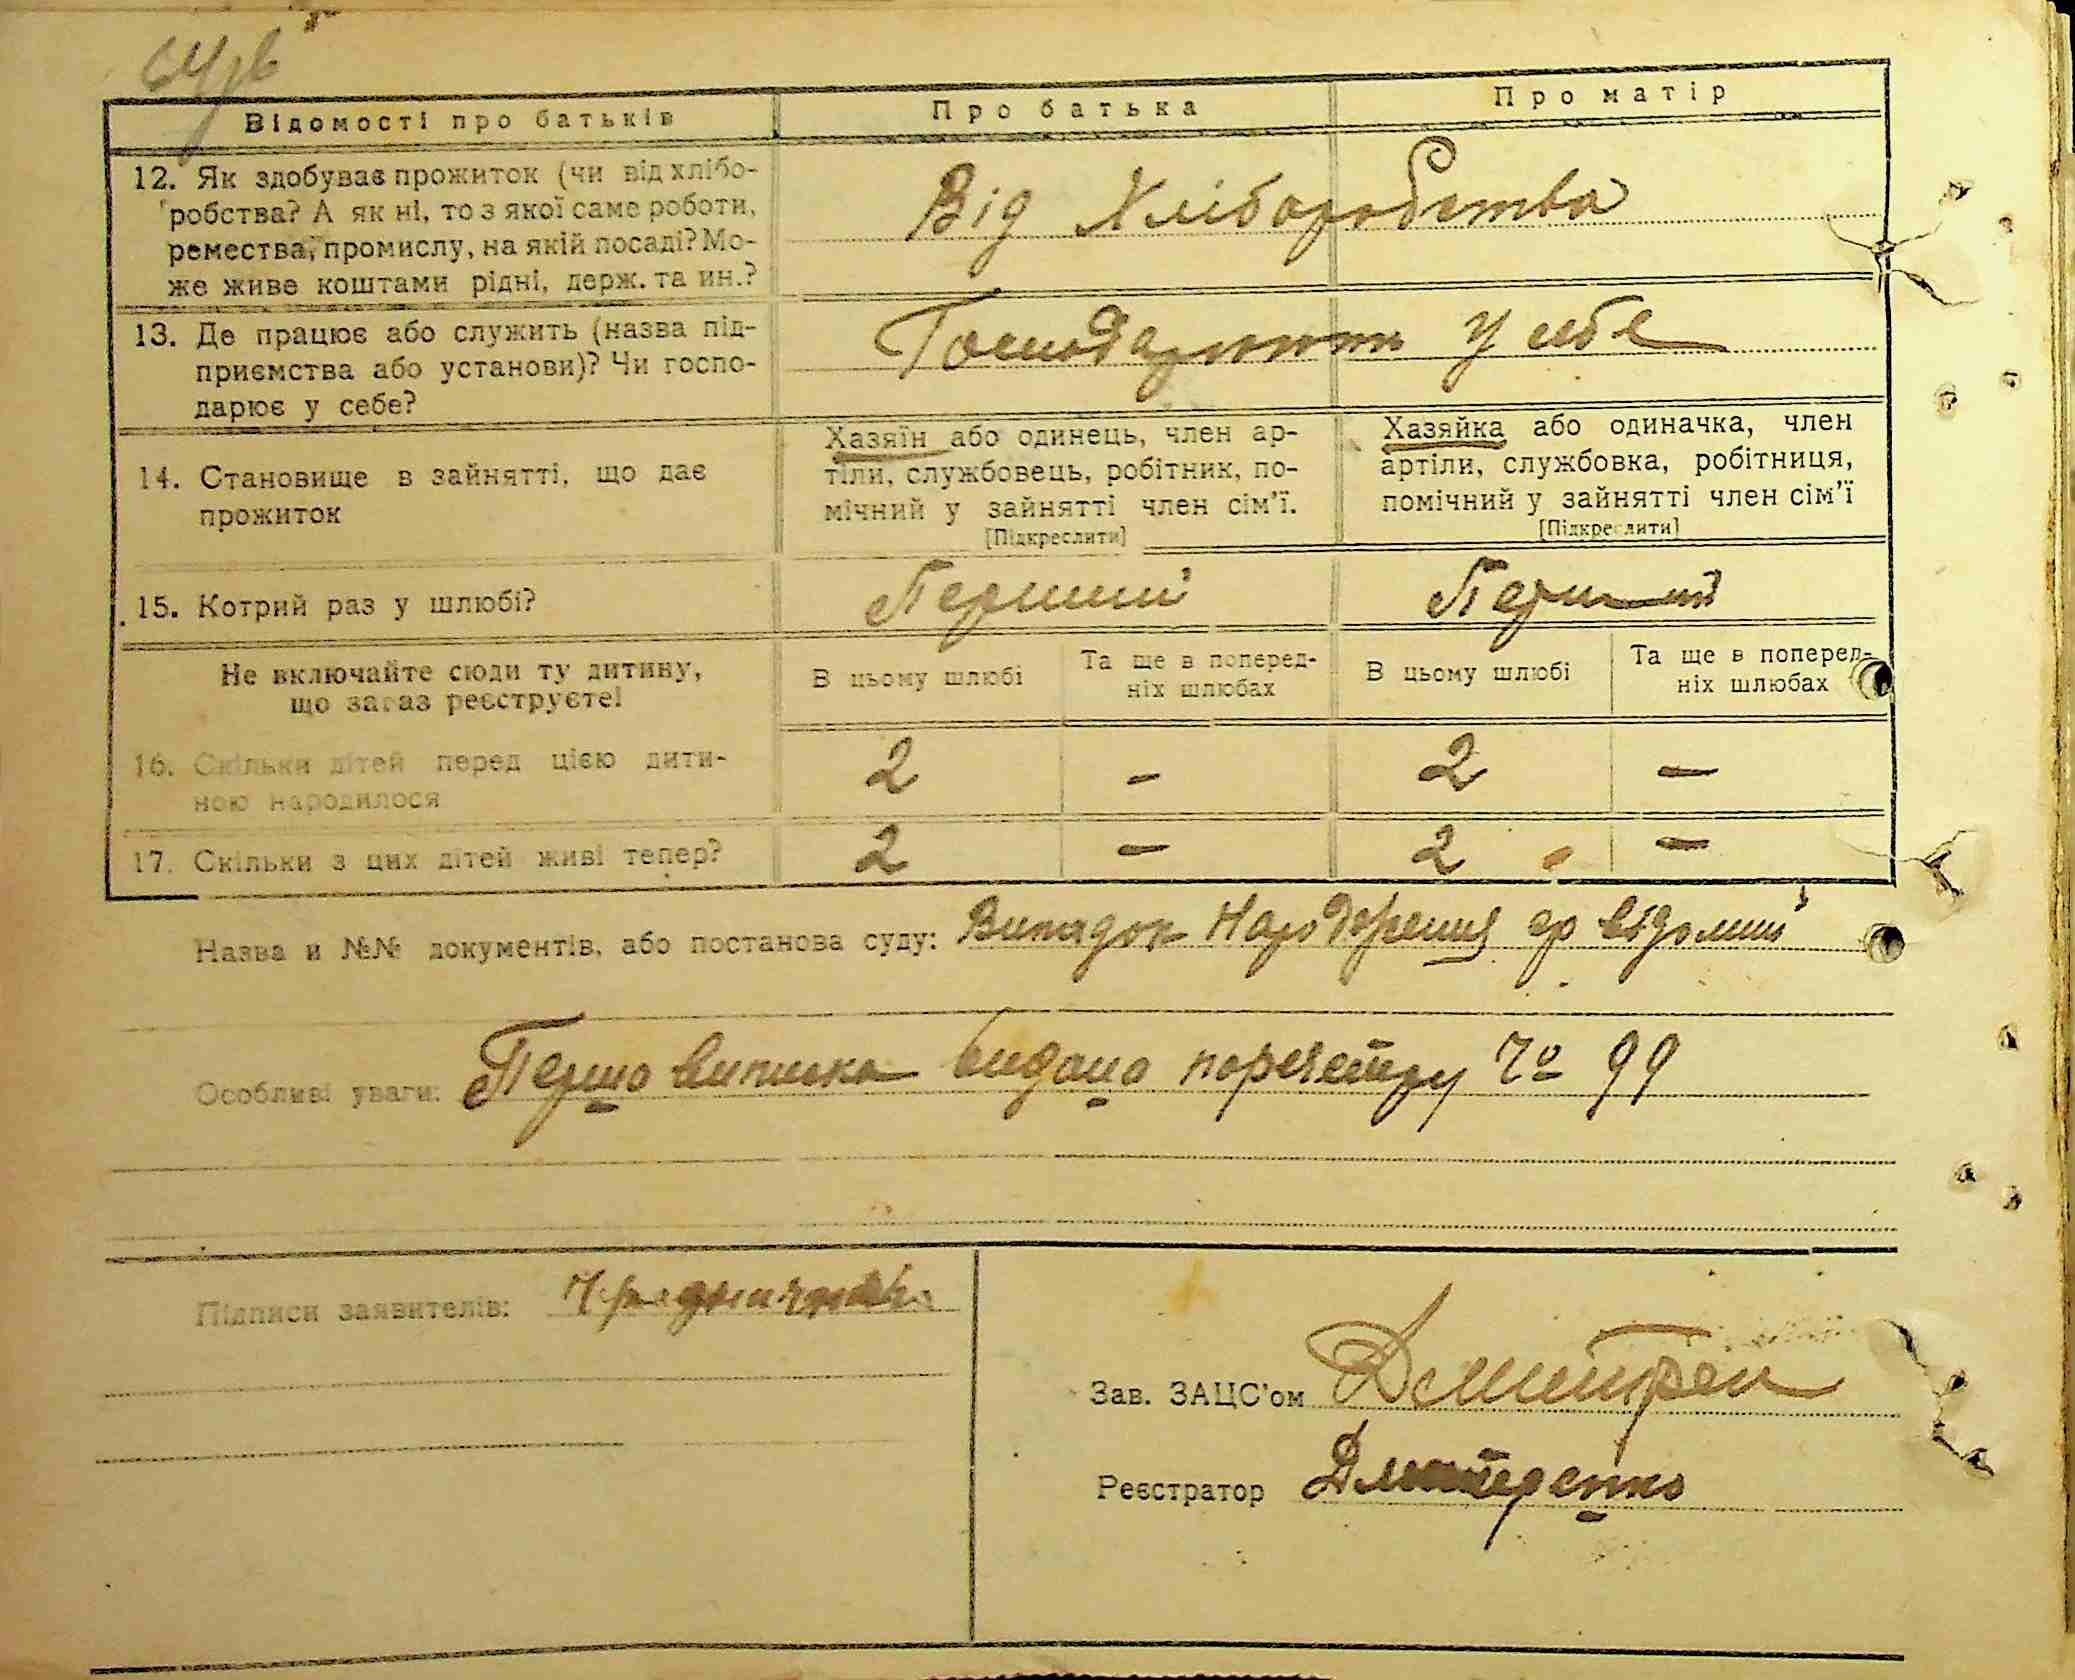 Відомості про батьків
Про батька
Про матір
12. Як здобуває прожиток (чи від хлібо-
робства? А як ні, то з якої саме роботи,
ремества, промислу, на якій посаді? Мо-
же живе коштами рідні, держ. та ин.?
Від Хлібаробства
13. Де працює або служить (назва під-
приємства або установи)? Чи госпо-
дарює у себе?
Господарюють у себе
14. Становище в зайнятті, що дає
прожиток
Хазяїн або одинець, член ар-
тіли, службовець, робітник, по-
мічний у зайнятті член сім'ї.
[Підкреслити]
Хазяйка або одиначка, член
артіли, службовка, робітниця,
помічний у зайнятті член сім'ї
[Підкреслити]
15. Котрий раз у шлюбі?
Перший
Перший
Не включайте сюди ту дитину,
що зараз реєструєте!
В цьому шлюбі
Та ще в поперед-
ніх шлюбах
В цьому шлюбі
Та ще в поперед-
ніх шлюбах
16. Скільки дітей перед цією дити-
ною народилося
2 - 2 -
17. Скільки з цих дітей живі тепер?
2 - 2 -
Назва и №№ документів, або постанова суду: Випадок відомий
Особливі уваги: Перша виписка видана 99
Підписи заявителів:
Зав. ЗАЦС'ом
Реєстратор Дмитренко